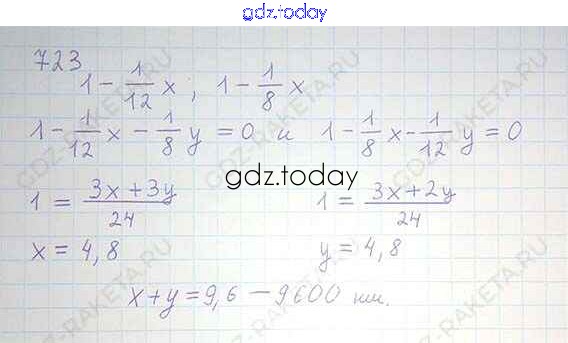 gdz.today
723
1 - 1/12 x ; 1 - 1/8 x
1 - 1/12 x - 1/8 y = 0 и 1 - 1/8 x - 1/12 y = 0
gdz.today
1 = 3x+3y/24 1 = 3x+2y/24
x = 4,8 y = 4,8
x+y=9,6 – 9600 км.
GDZ-RAKETA.RU